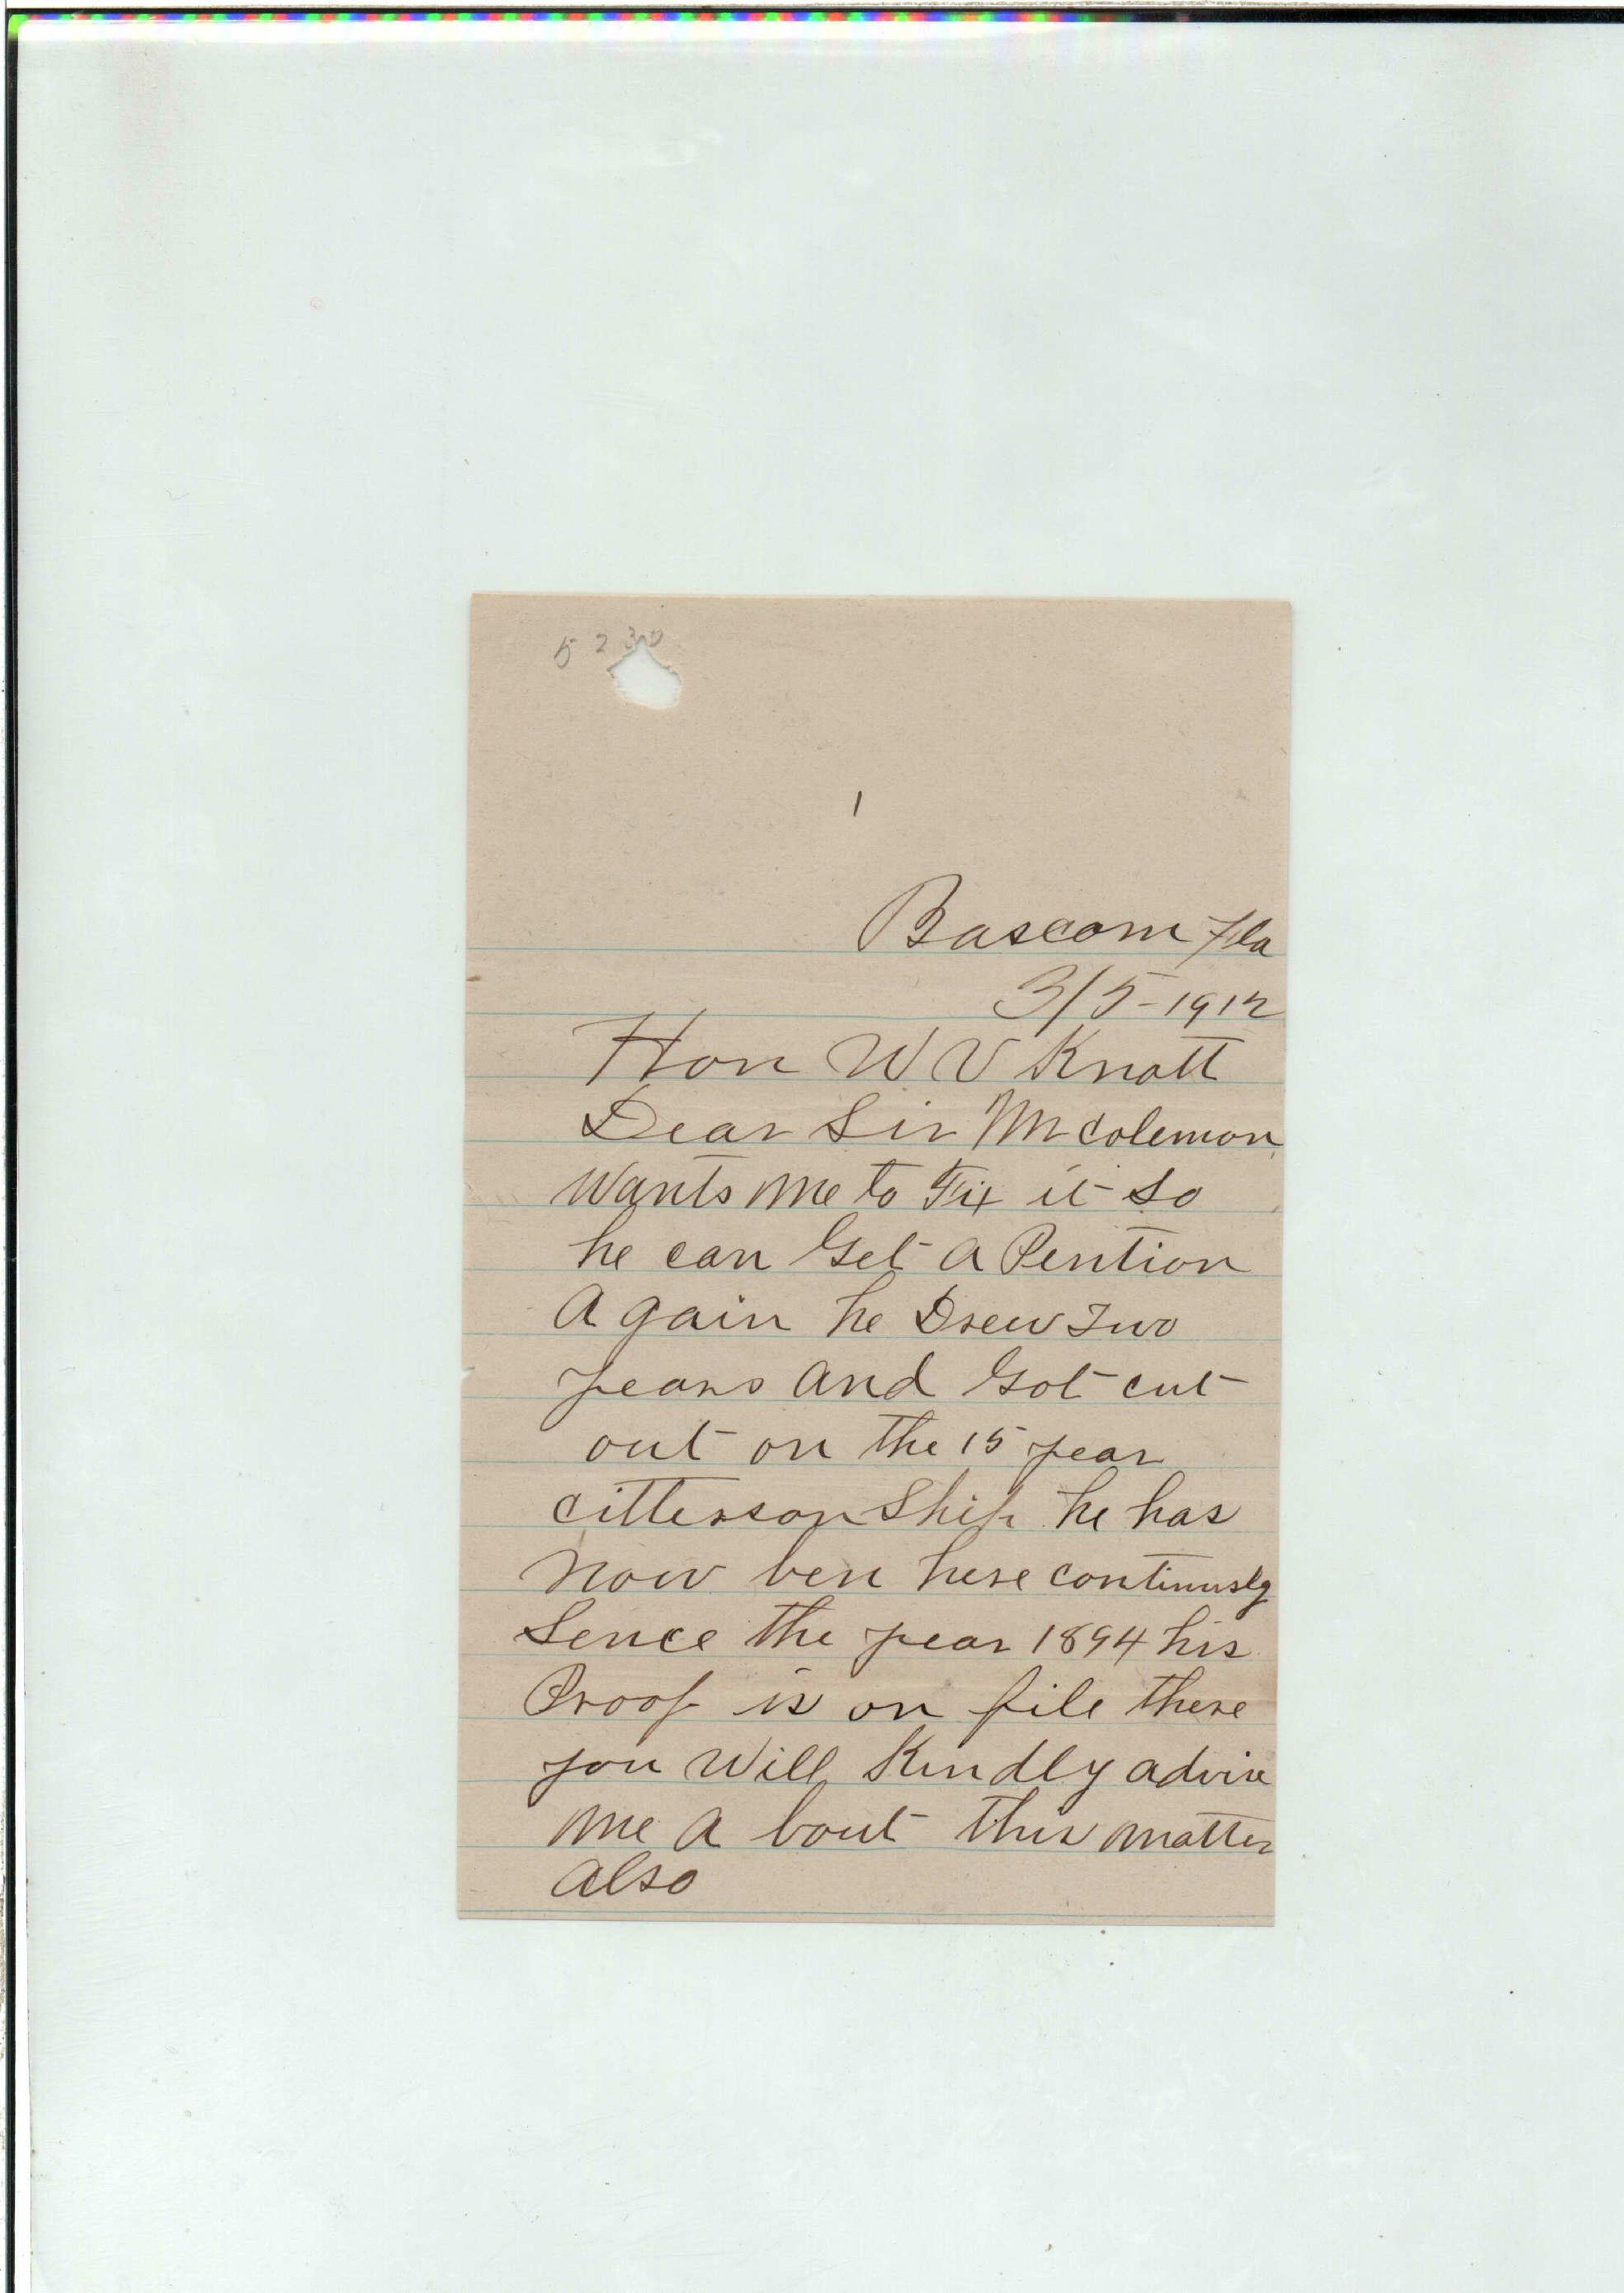 5230
1
Bascom Fla
3/5-1912
Hon W V Knott
Dear Sir Mr Colemon
Wants me to Fix it so
he can Get a Pention
Again he Drew Two
years and Got cut
out on the 15 year
cittersonShip he has
now ben here continusly
Sence the year 1894 his
Proof is on file there
you Will Kindly advise
me a bout this matter
also